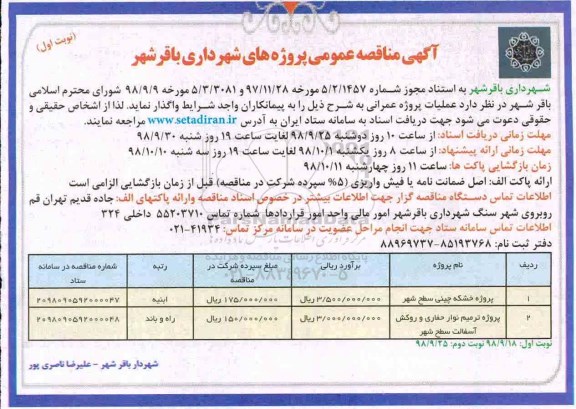 (نوبت اول)
آگهی مناقصه عمومی پروژه های شهرداری باقرشهر
شهرداری باقرشهر به استناد مجوز شماره ۵/۲/۱۴۵۷ مورخه ۹۷/۱۱/۲۸ و ۵/۳/۳۰۸۱ مورخه ۹۸/۹/۹ شورای محترم اسلامی
باقر شهر در نظر دارد عملیات پروژه عمرانی به شرح ذیل را به پیمانکاران واجد شرایط واگذار نماید. لذا از اشخاص حقیقی و
حقوقی دعوت می شود جهت دریافت اسناد به سامانه ستاد ایران به آدرس www.setadiran.ir مراجعه نمایند.
مهلت زمانی دریافت اسناد: از ساعت ۱۰ روز دوشنبه ۹۸/۹/۲۵ لغایت ساعت ۱۹ روز شنبه ۹۸/۹/۳۰
مهلت زمانی ارائه پیشنهاد: از ساعت ۸ روز یکشنبه ۹۸/۱۰/۱ لغایت ساعت ۱۹ روز سه شنبه ۹۸/۱۰/۱۰
زمان بازگشایی پاکت ها: ساعت ۱۱ روز چهارشنبه ۹۸/۱۰/۱۱
ارائه پاکت الف: اصل ضمانت نامه یا فیش واریزی (۵% سپرده شرکت در مناقصه) قبل از زمان بازگشایی الزامی است
اطلاعات تماس دستگاه مناقصه گزار جهت اطلاعات بیشتر در خصوص اسناد مناقصه وارائه پاکتهای الف: جاده قدیم تهران قم
روبروی شهر سنگ شهرداری باقرشهر امور مالی واحد امور قراردادها، شماره تماس ۵۵۲۰۳۷۱۰ داخلی ۳۲۴
اطلاعات تماس سامانه ستاد جهت انجام مراحل عضویت در سامانه مرکز تماس: ۴۱۹۳۴-۰۲۱
دفتر ثبت نام: ۸۵۱۹۳۷۶۸-۸۸۹۶۹۷۳۷
ردیف نام پروژه برآورد ریالی مبلغ سپرده شرکت در مناقصه رتبه شماره مناقصه در سامانه ستاد
۱ پروژه خشکه چینی سطح شهر ۳/۵۰۰/۰۰۰/۰۰۰ ریال ۱۷۵/۰۰۰/۰۰۰ ریال ابنیه ۲۰۹۸۰۹۰۵۹۲۰۰۰۰۴۷
۲ پروژه ترمیم نوار حفاری و روکش آسفالت سطح شهر ۳/۰۰۰/۰۰۰/۰۰۰ ریال ۱۵۰/۰۰۰/۰۰۰ ریال راه و باند ۲۰۹۸۰۹۰۵۹۲۰۰۰۰۴۸
نوبت اول: ۹۸/۹/۱۸ نوبت دوم: ۹۸/۹/۲۵
شهردار باقر شهر - علیرضا ناصری پور